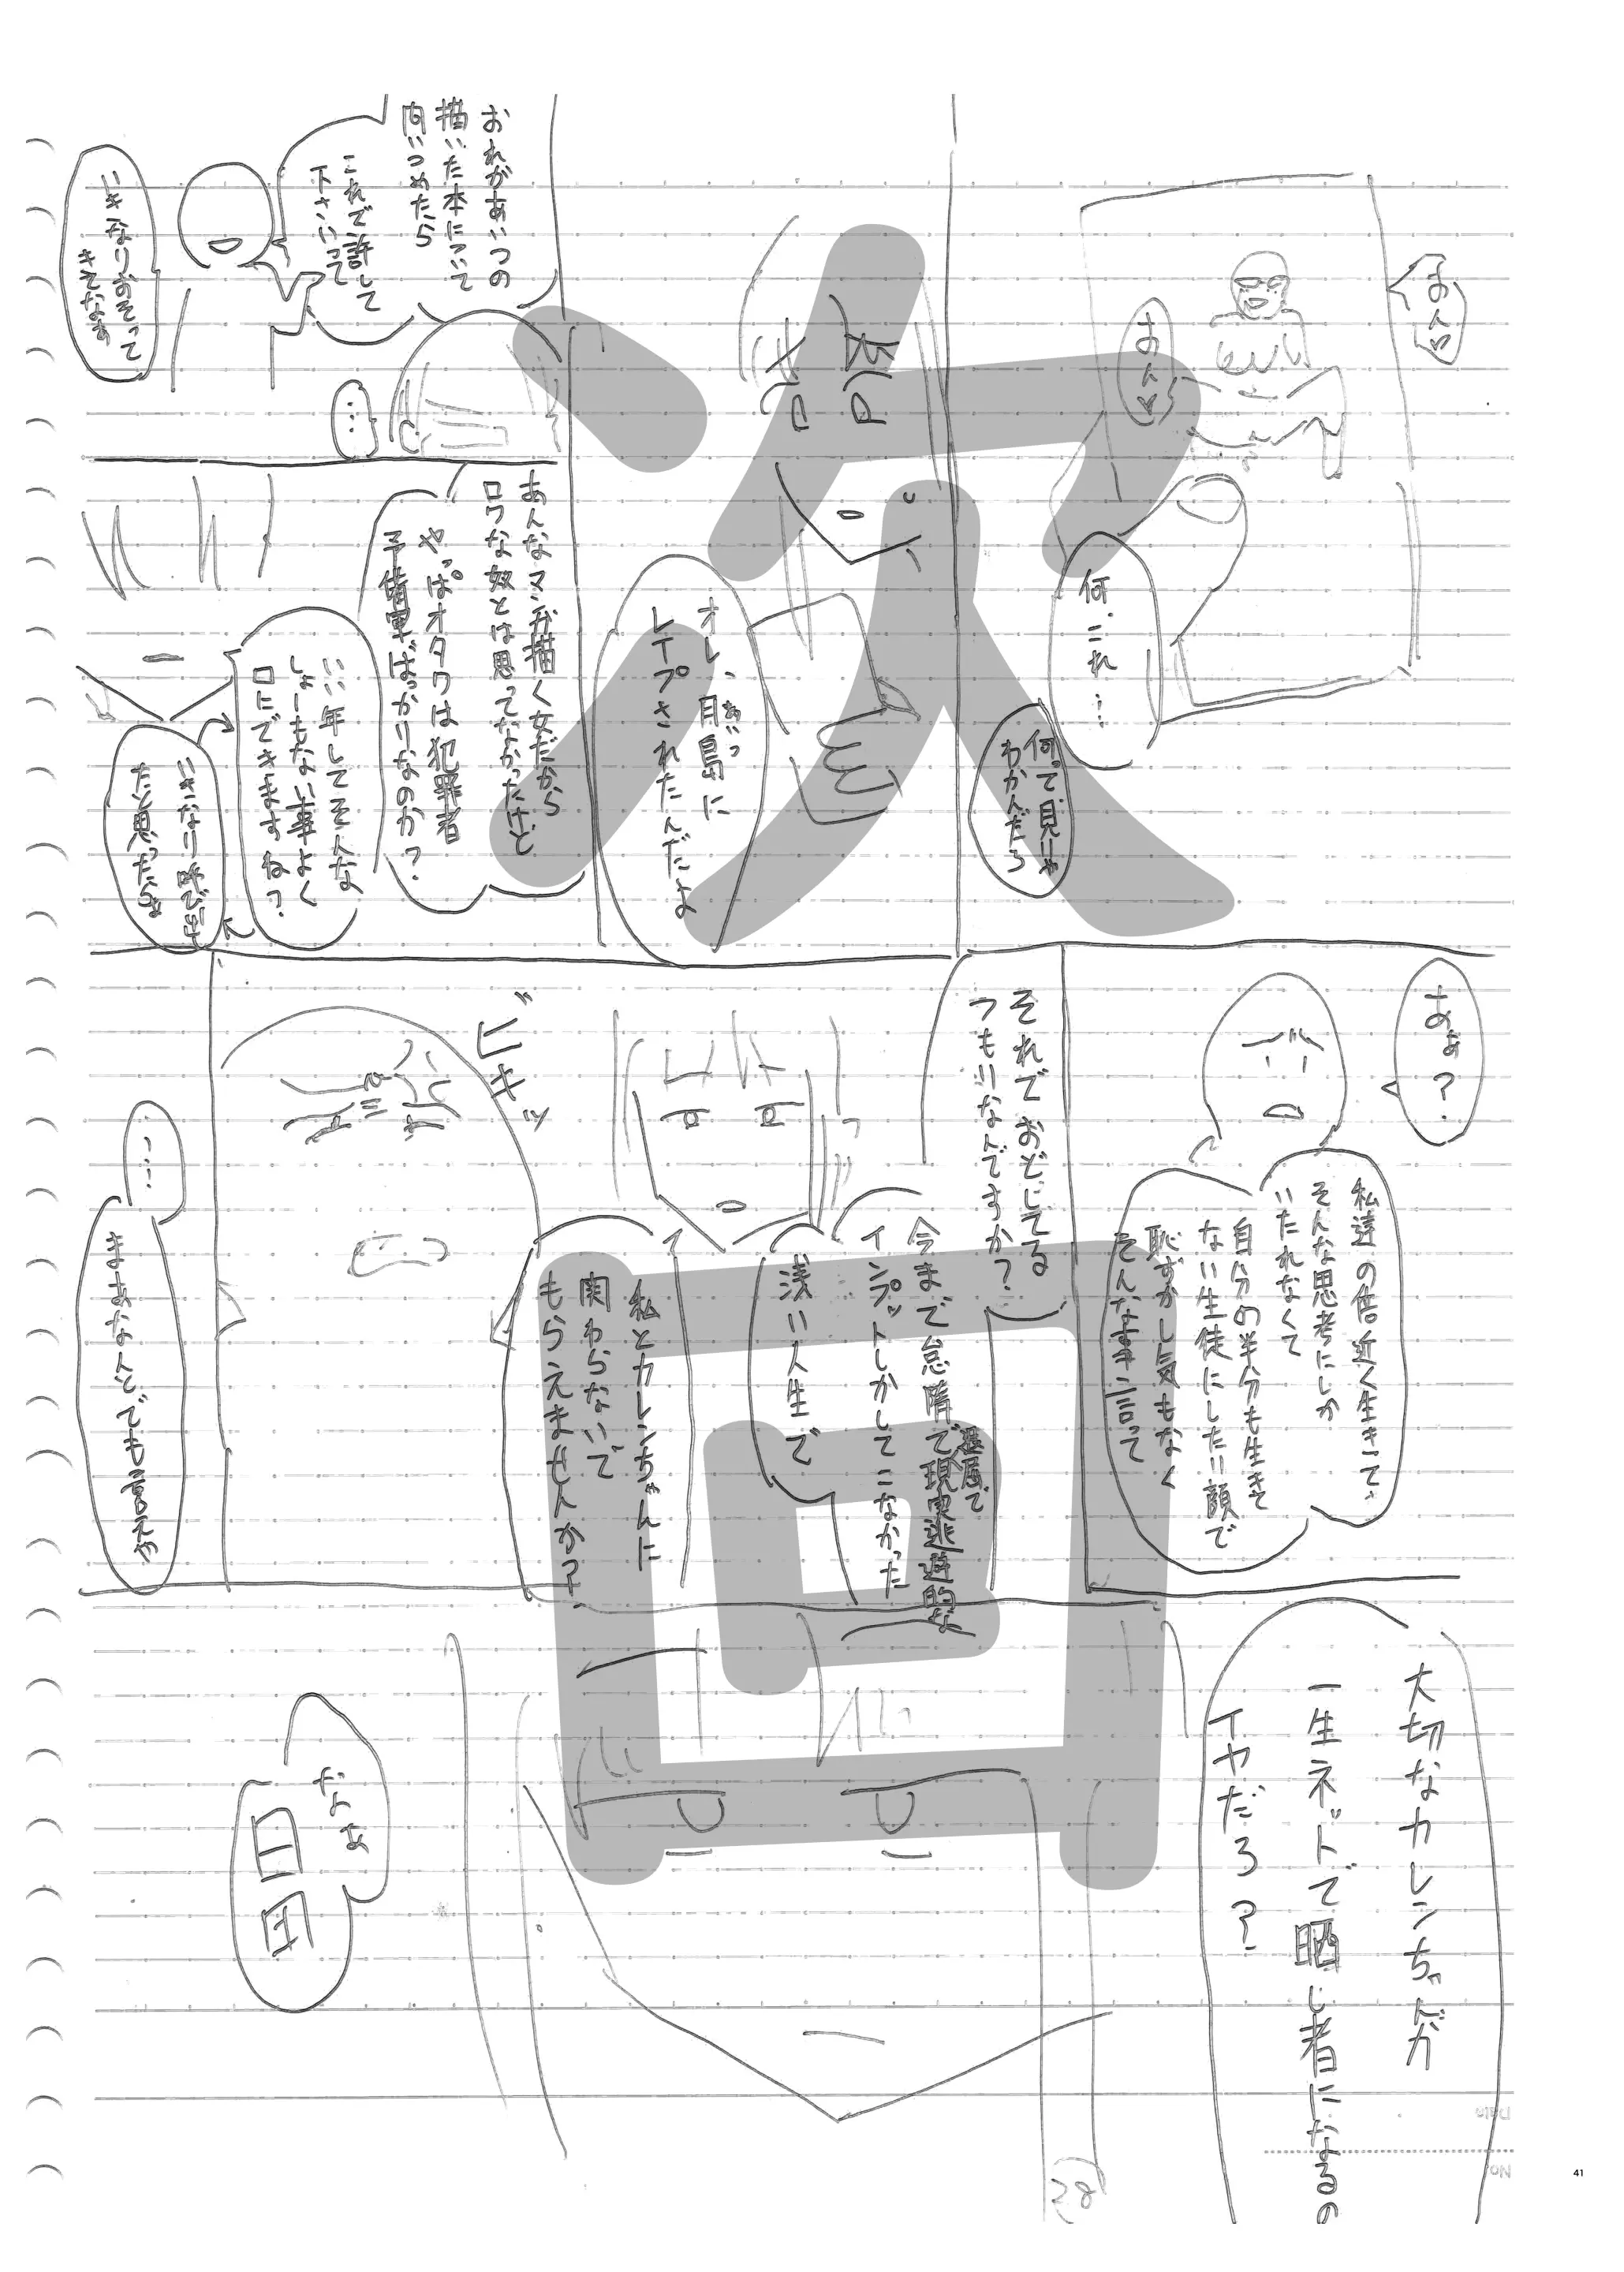 何、これ…
何って見りゃ
わかんだろ
オレ、目島に
あいつ
レイプされたんだよ
おれがあいつの
描いた本について
問いつめたら
これで許して
下さいって
いきなりおそって
きてなぁ
…
あんなマンガ描く女だから
ロクな奴とは思ってなかったけど
やっぱオタクは犯罪者
予備軍ばっかりなのか?
いい年してそんな
しょーもない事よく
口にできますね?
いきなり呼び出し
だと思ったら
あぁ?
私達の倍近く生きて
そんな思考にしか
いたれなくて
自分の半分も生きて
ない生徒にしたり顔で
恥ずかし気もなく
それでおどしてる
つもりなんですか?
今まで怠惰で
退屈で
現実逃避的な
インプットしかしてこなかった
浅い人生で
私とカレンちゃんに
関わらないで
もらえませんか?
ビキッ
…
まぁなんとでも言えや
大切なカレンちゃんが
一生ネットで晒し者になるの
イヤだろ?
なぁ
38
Date
No.
次回
41